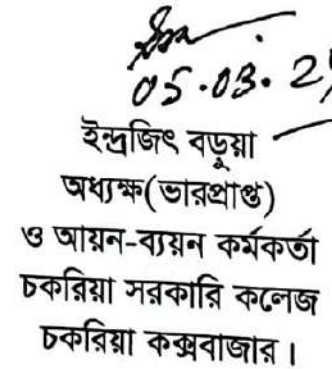 05.03.2
ইন্দ্রজিৎ বড়ুয়া
অধ্যক্ষ(ভারপ্রাপ্ত)
ও আয়ন-ব্যয়ন কর্মকর্তা
চকরিয়া সরকারি কলেজ
চকরিয়া কক্সবাজার।